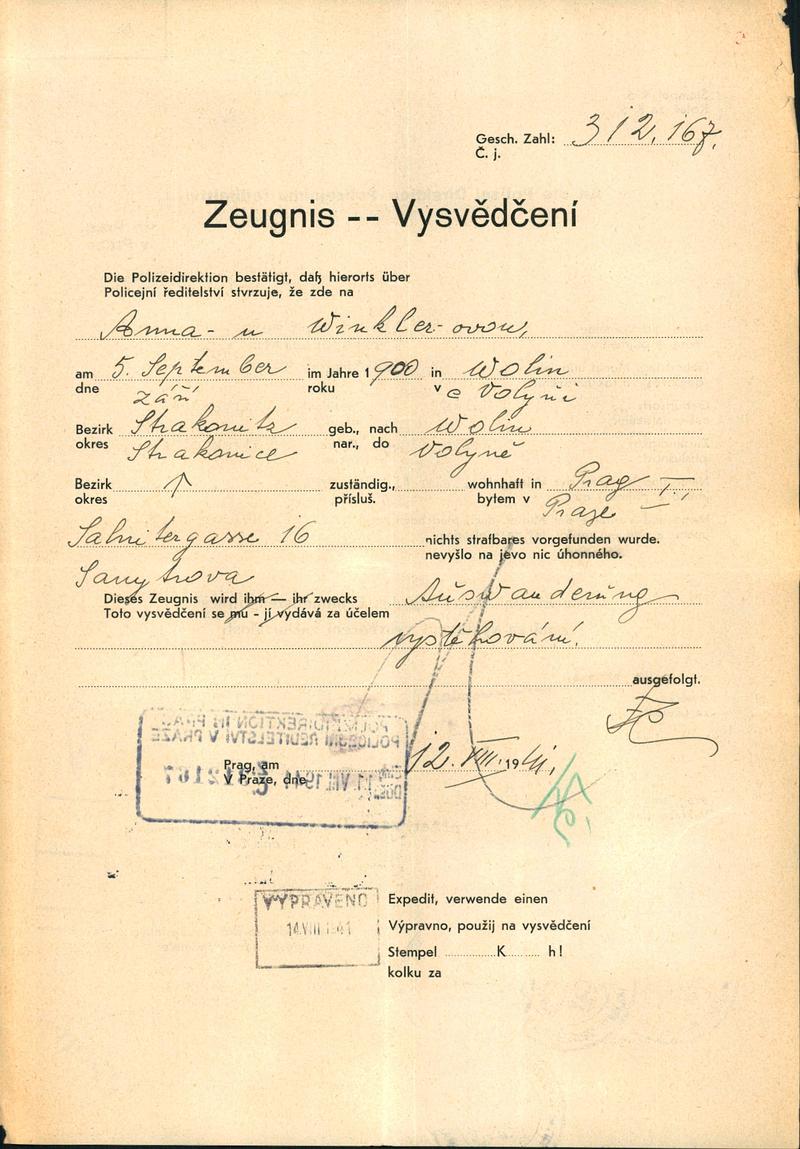 Gesch. Zahl: 312.167.
Č. j.
Zeugnis -- Vysvědčení
Die Polizeidirektion bestätigt, daß hierorts über
Policejní ředitelství stvrzuje, že zde na
Anna- u Winkler-ovou,
am 5. September im Jahre 1900 in Wolin
dne září roku v Volyni
Bezirk Strakonitz geb., nach Wolin
okres Strakonice nar., do Volyně
Bezirk zuständig., wohnhaft in Prag I.,
okres přísluš. bytem v Praze I
Salnitergasse 16 nichts strafbares vorgefunden wurde.
nevyšlo na jevo nic úhonného.
Sanytrova
Dieses Zeugnis wird ihm — ihr zwecks Auswanderung
Toto vysvědčení se mu - jí vydává za účelem
vystěhování.
ausgefolgt.
POLIZEIDIREKTION IN PRAG
POLICEJNÍ ŘEDITELSTVÍ V PRAZE
Prag, am 12. VIII. 1941.
V Praze, dne
VYPRAVENO
14. VIII 1941
Expedit, verwende einen
Výpravno, použij na vysvědčení
Stempel K h!
kolku za